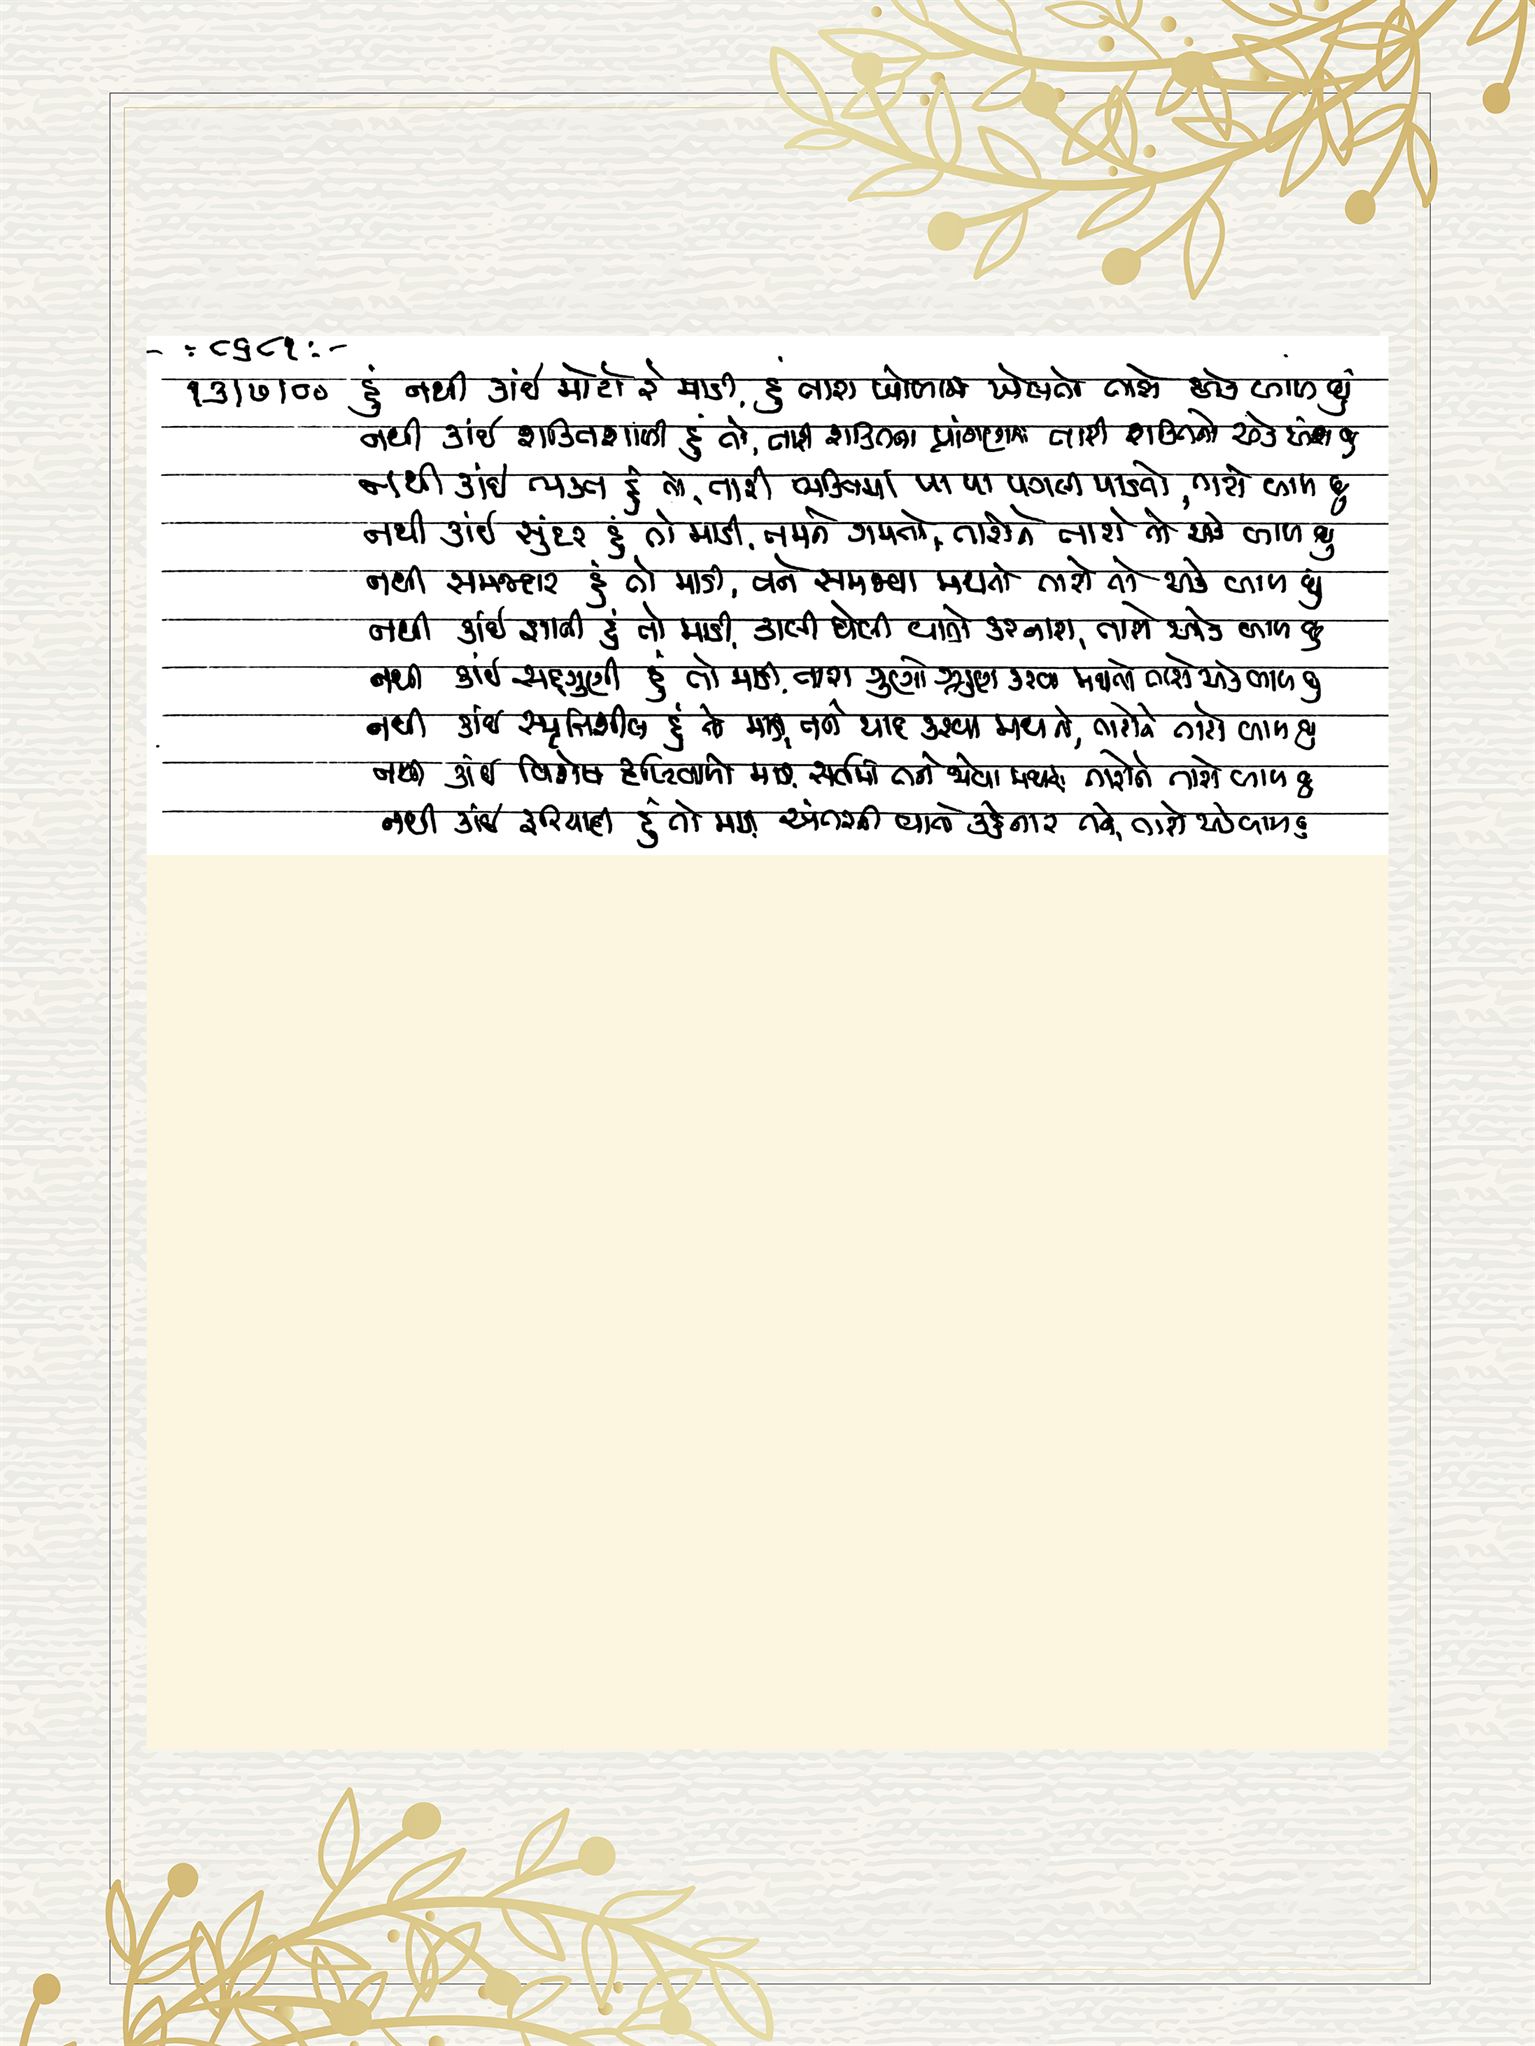 -: ૮૬૮૧ :-
૧૩/૭/૦૦ હું નથી કાંઈ મોટો રે માડી, હું તારા ખોળામાં ખેલતો તારો એક બાળ છું
નથી કાંઈ શક્તિશાળી હું તો, તારી શક્તિના પ્રાંગણમાં તારી શક્તિનો એક અંશ છું
નથી કાંઈ વ્યક્ત હું તો, તારી વ્યક્તિમાં પા પા પગલી પાડતો, તારો બાળ છું
નથી કાંઈ સુંદર હું તો માડી, તમને ગમતો, તારોને તારો તો એક બાળ છું
નથી સમજદાર હું તો માડી, તને સમજવા મથતો તારો તો એક બાળ છું
નથી કાંઈ જ્ઞાની હું તો માડી, કાલી ઘેલી વાતો કરનારા, તારો એક બાળ છું
નથી કાંઈ સદ્ગુણી હું તો માડી, તારા ગુણો ગ્રહણ કરવા મથતો તારો એક બાળ છું
નથી કાંઈ સ્મૃતિશીલ હું તો માડી, તને યાદ કરવા મથતો, તારોને તારો બાળ છું
નથી કાંઈ વિશેષ દૃષ્ટિવાળો માડી, સર્વમાં તને જોવા મથતો તારોને તારો બાળ છું
નથી કાંઈ ફરિયાદી હું તો માડી, અંતરની વાતો કહેનાર તને, તારો એક બાળ છું